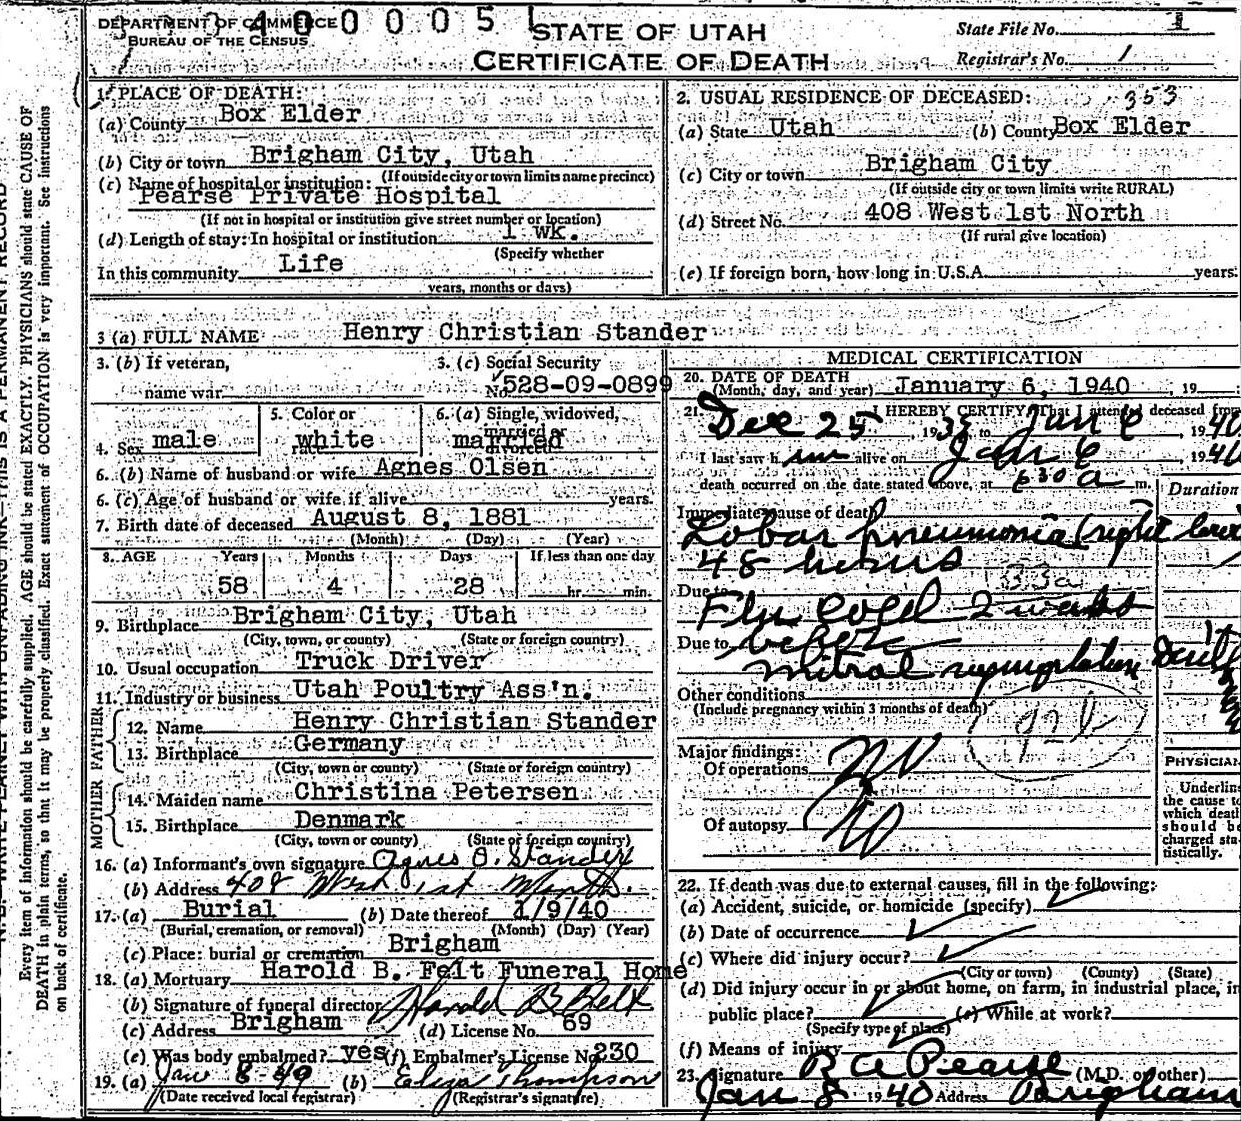 DEPARTMENT OF COMMERCE
BUREAU OF THE CENSUS
400051
STATE OF UTAH
CERTIFICATE OF DEATH
State File No. 1
Registrar's No. 1
N. B. WRITE PLAINLY WITH UNFADING INK—THIS IS A PERMANENT RECORD
Every item of information should be carefully supplied. AGE should be stated EXACTLY. PHYSICIANS should state CAUSE OF
DEATH in plain terms, so that it may be properly classified. Exact statement of OCCUPATION is very important. See instructions
on back of certificate.
1. PLACE OF DEATH:
(a) County Box Elder
(b) City or town Brigham City, Utah
(If outside city or town limits name precinct)
(c) Name of hospital or institution:
Pearse Private Hospital
(If not in hospital or institution give street number or location)
(d) Length of stay: In hospital or institution 1 wk.
(Specify whether
In this community Life
years, months or days)
2. USUAL RESIDENCE OF DECEASED: 353
(a) State Utah (b) County Box Elder
(c) City or town Brigham City
(If outside city or town limits write RURAL)
(d) Street No. 408 West 1st North
(If rural give location)
(e) If foreign born, how long in U.S.A. years.
3 (a) FULL NAME Henry Christian Stander
3. (b) If veteran,
name war
3. (c) Social Security
No. 528-09-0899
4. Sex male
5. Color or
race white
6. (a) Single, widowed,
married or
divorced married
6. (b) Name of husband or wife Agnes Olsen
6. (c) Age of husband or wife if alive years.
7. Birth date of deceased August 8, 1881
(Month) (Day) (Year)
8. AGE Years Months Days If less than one day
58 4 28 hr. min.
9. Birthplace Brigham City, Utah
(City, town, or county) (State or foreign country)
10. Usual occupation Truck Driver
11. Industry or business Utah Poultry Ass'n.
FATHER
12. Name Henry Christian Stander
13. Birthplace Germany
(City, town or county) (State or foreign country)
MOTHER
14. Maiden name Christina Petersen
15. Birthplace Denmark
(City, town or county) (State or foreign country)
16. (a) Informant's own signature Agnes O. Stander
(b) Address 408 West 1st North.
17. (a) Burial (b) Date thereof 1/9/40
(Burial, cremation, or removal) (Month) (Day) (Year)
(c) Place: burial or cremation Brigham
18. (a) Mortuary Harold B. Felt Funeral Home
(b) Signature of funeral director Harold B Felt
(c) Address Brigham (d) License No. 69
(e) Was body embalmed? yes (f) Embalmer's License No. 230
19. (a) Jan 8-40 (b) Eliza Thompson
(Date received local registrar) (Registrar's signature)
MEDICAL CERTIFICATION
20. DATE OF DEATH
(Month, day, and year) January 6, 1940, 19
21. I HEREBY CERTIFY, That I attended deceased from
Dec 25, 1939 to Jan 6, 1940
I last saw him alive on Jan 6, 1940
death occurred on the date stated above, at 630 a m.
Duration
Immediate cause of death
Lobar pneumonia (right lower
48 hours
33a
Due to Flu 2 weeks
Due to before
mitral regurgitation
Other conditions
(Include pregnancy within 3 months of death)
92b
Major findings:
Of operations No
Of autopsy No
PHYSICIAN
Underline
the cause to
which death
should be
charged sta-
tistically.
22. If death was due to external causes, fill in the following:
(a) Accident, suicide, or homicide (specify)
(b) Date of occurrence
(c) Where did injury occur?
(City or town) (County) (State)
(d) Did injury occur in or about home, on farm, in industrial place, in
public place? (e) While at work?
(Specify type of place)
(f) Means of injury
23. Signature R A Pearse (M.D. or other)
Jan 8 1940 Address Brigham